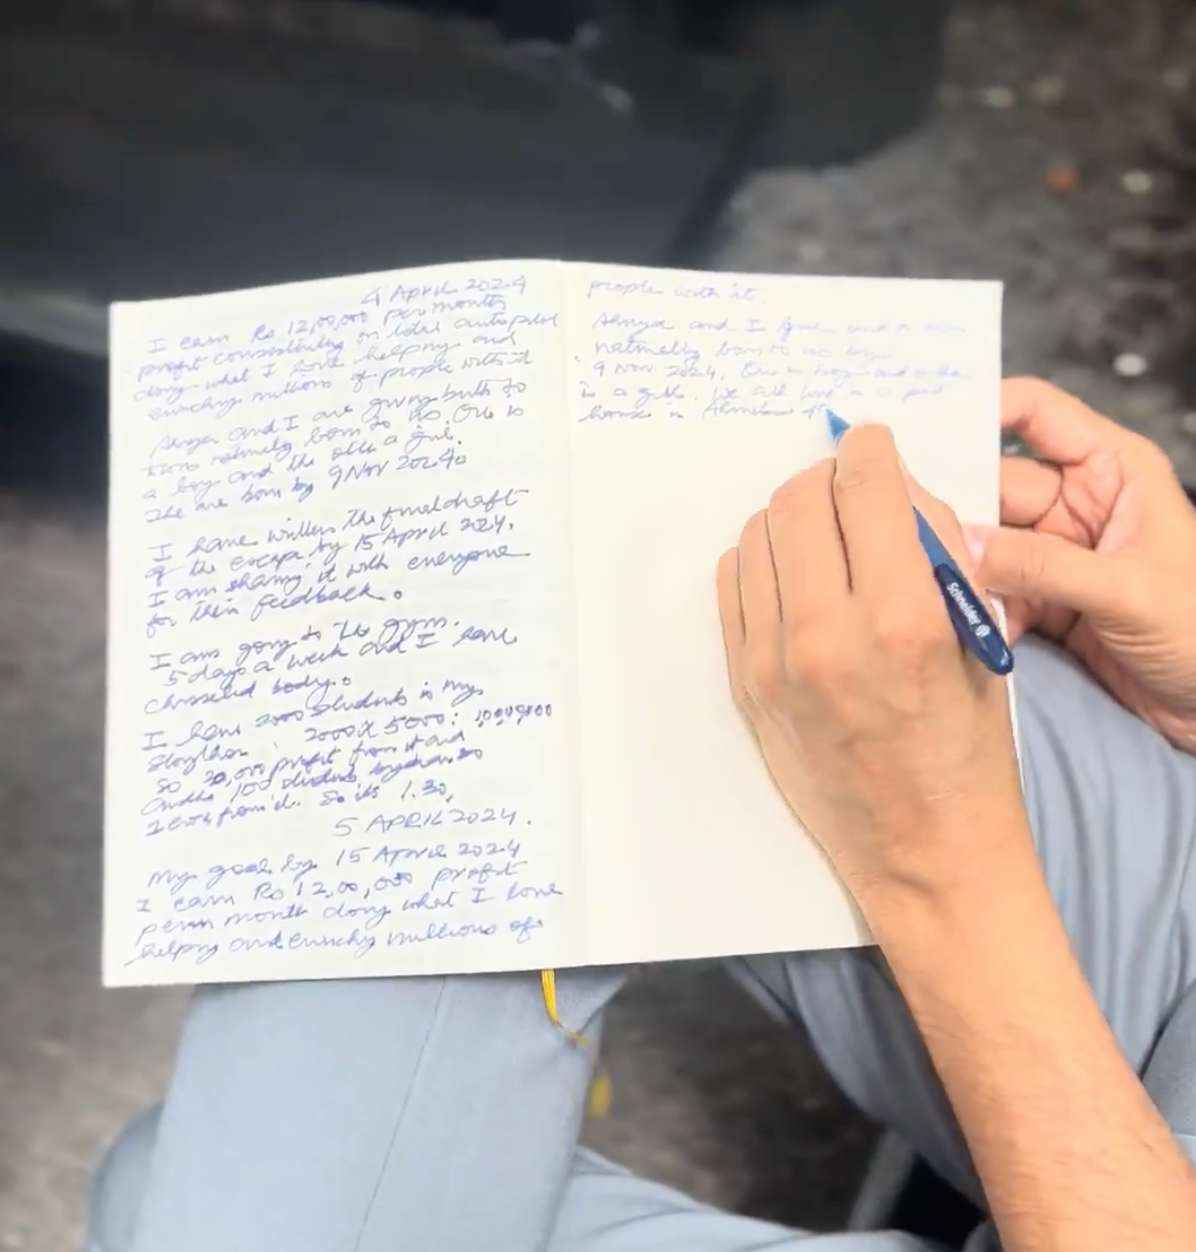 4 April 2024
I earn Rs 12,00,000 per months
profit consistently on total autopilot
doing what I love helping and
enriching millions of people with it
and I are giving birth to
naturally born to us. One is
a boy and the other a girl.
The are born by 9 Nov 2024.
I have written the final draft
of the escape by 15 April 2024.
I am sharing it with everyone
for their feedback.
I am going to the gym.
5 days a week and I have
body.
I have 2000 students in my
2000 X 5000 =
So profit from it and
100 students
from it. So its 1.30,
5 APRIL 2024.
My goal by 15 April 2024
I earn Rs 12,00,000 profit
per month doing what I love
helping and enriching millions of
people with it.
and I
naturally born to us by
9 Nov 2024. One is boy and
is a girl. We all live in a
house in
Schneider